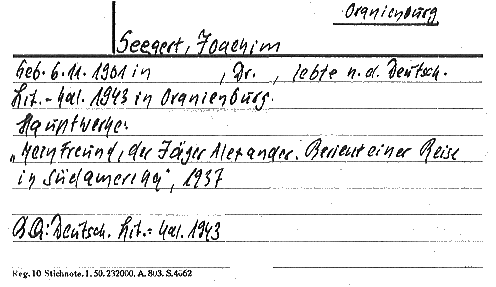 Oranienburg
Seegert, Joachim
Geb. 6.11.1901 in , Dr. , lebte n. d. Deutsch.
Lit.-Kal. 1943 in Oranienburg.
Hauptwerke:
„Mein Freund, der Jäger Alexander. Bericht einer Reise
in Südamerika", 1937
QQ: Deutsch. Lit.-Kal. 1943
Reg. 10 Stichnote. 1. 50. 232000. A. 803. S. 4062